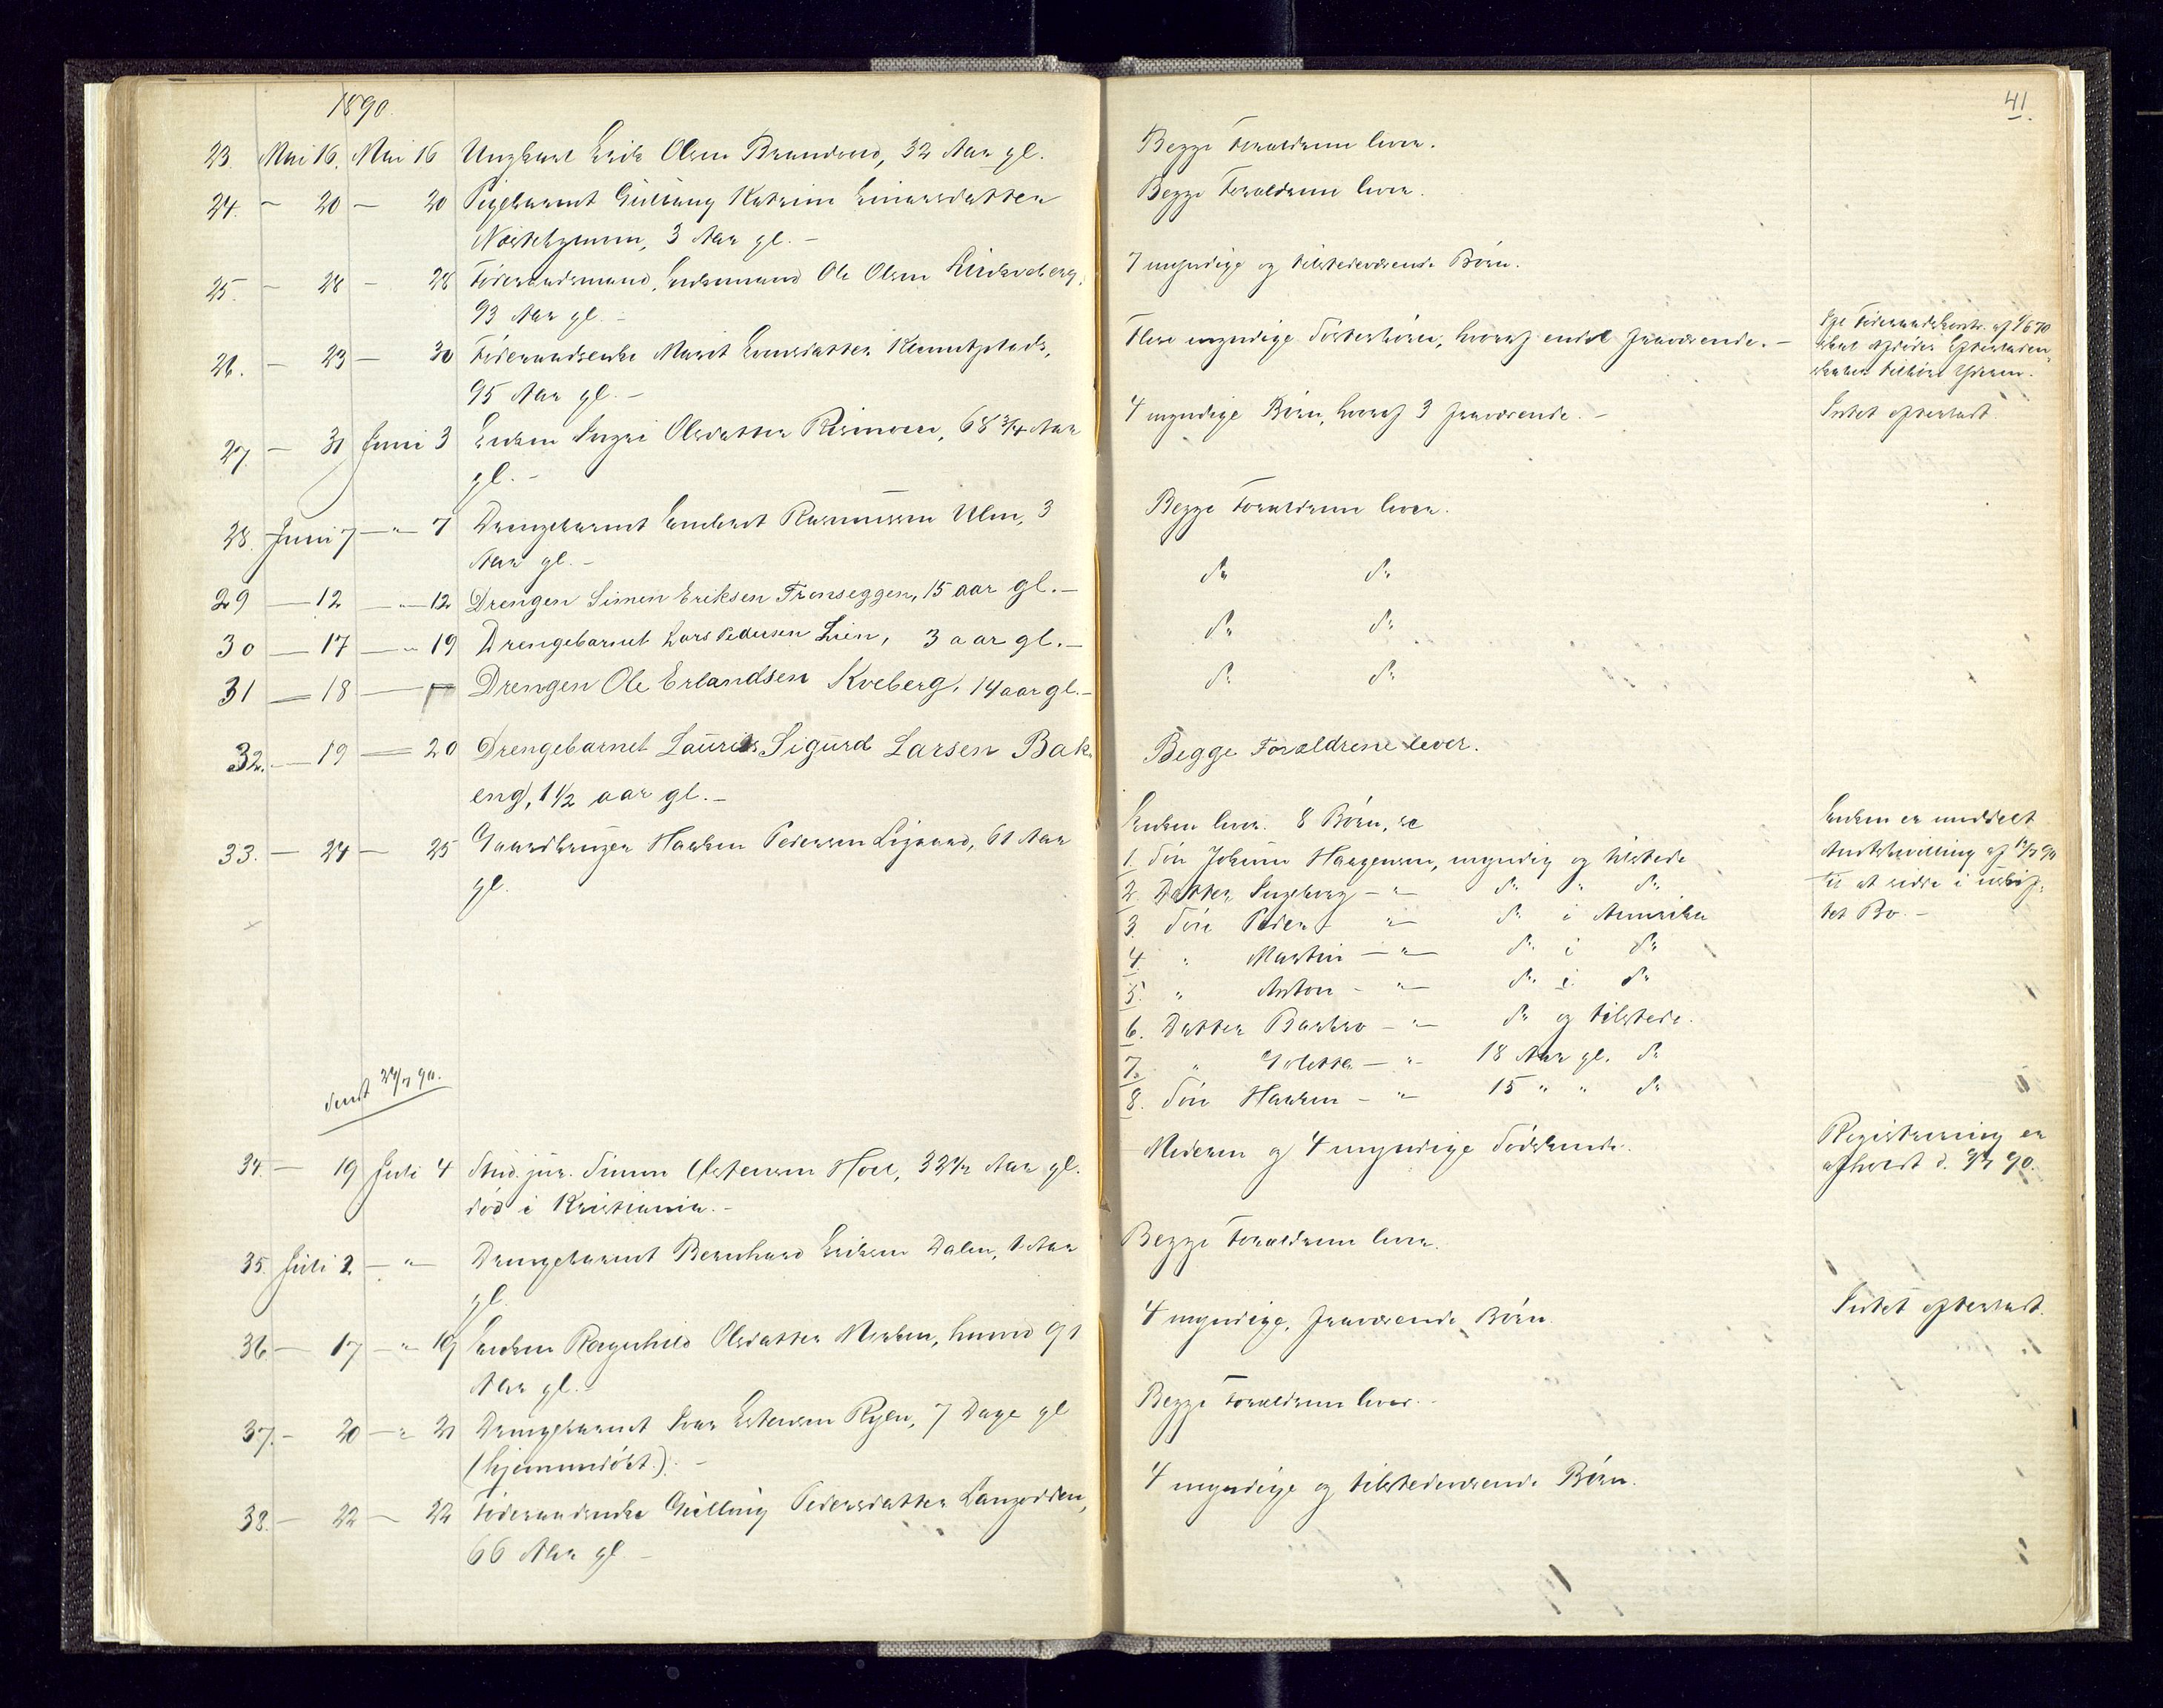 1890.
23. Mai 16. Mai 16 Ungkarl Erik Olsen Brandvold, 32 Aar gl.
24. — 20 — 20 Pigebarnet Gulaug Katrine Einarsdatter
3 Aar gl. —
25. — 28 — 28 Føderaadsmand, Enkemand Ole Olsen
93 Aar gl. —
26. — 23 — 30 Føderaadsenke Marit
95 Aar gl. —
27. — 31 Juni 3 Enken Ingri Olsdatter Rismoen, 68 3/4 Aar
gl. —
28. Juni 7 — " 7 Drengebarnet Embret Rasmussen Ulen, 3
Aar gl. —
29 — 12 — " 12 Drengen Simen Eriksen Tronseggen, 15 aar gl. —
30 — 17 — " 19 Drengebarnet Lars Pedersen Lien, 3 aar gl. —
31 — 18 — Drengen Ole Erlandsen Kveberg, 14 aar gl. —
32. — 19 — 20 Drengebarnet Laurits Sigurd Larsen Bak-
eng, 1 1/2 aar gl. —
33. — 24 — 25 Gaardbruger Haaken Pedersen Ligaard, 61 Aar
gl.
Sendt 24/7 90.
34. — 19 Juli 4 Stud. jur. Simen Estensen Hoel, 32 1/2 Aar gl.
død i Kristiania. —
35. Juli 2. — " — Drengebarnet Bernhard Eriksen Dalen, 1 Aar
gl.
36. — 17 — " 19 Enken Ragnhild Olsdatter Moen, 91
Aar gl. —
37. — 20 — " 21 Drengebarnet Ivar Estensen Ryen, 7 Dage gl
(hjemmedøbt). —
38. — 22 — 22 Føderaadsenke Gulling Pedersdatter Langodden,
66 Aar gl —
41.
Begge Forældrene lever.
Begge Forældrene lever.
7 myndige og tilstedeværende Børn.
Flere myndige Søsterbørn, hvoraf endel fraværende. —
4 myndige Børn, hvoraf 3 fraværende. —
Intet efterladt.
Begge Forældrene lever.
do do
do do
do do
Begge Forældrene lever.
Enken lever. 8 Børn,
1. Søn Johan Haagensen, myndig og tilstede
2. Datter Ingeborg — " do " do
3. Søn Peder " — do i Amerika
4. " Martin — " — do i do
5. " Anton — " — do i do
6. Datter Barbro — " — do og tilstede.
7. " Goletta — " — 18 Aar gl. do
8. Søn Haaken — " — 15 " " do
Enken er meddelt
Amtsbevilling af 12/7 90
til at sidde i uskif-
tet Bo. —
Moderen og 4 myndige Sødskende.
Registrering er
afholdt d. 90.
Begge Forældrene lever.
4 myndige, fraværende Børn.
Intet efterladt.
Begge Forældrene lever. —
4 myndige og tilstedeværende Børn.